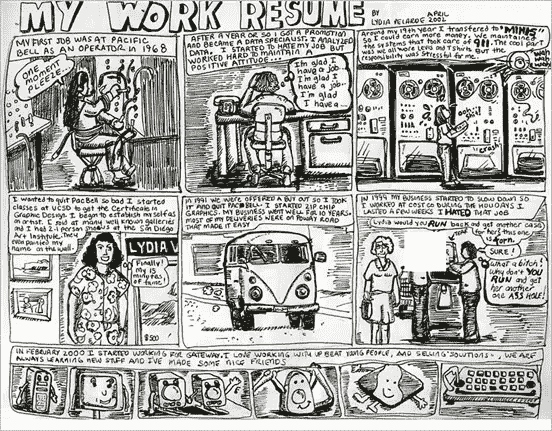 MY WORK RESUME
BY
LYDIA VELARDE
APRIL
2002
MY FIRST JOB WAS AT PACIFIC
BELL AS AN OPERATOR IN 1968
ONE CENT
PLEEZE..
AFTER A YEAR OR SO I GOT A PROMOTION
AND BECAME A DATA SPECIALIST. I ANALYZED
DATA. I STARTED TO HATE MY JOB BUT
WORKED HARD TO MAINTAIN A
POSITIVE ATTITUDE...
I'm glad I
have a job
I'm glad I
have a job-
I'm glad
I have a...
Around my 19th year I transferred to "MINIS"
so I could earn more money. We maintained
the systems that took care of 911. The cool part
was we all wore Levis and T shirts but the
responsibility was stressful for me.
crash
I wanted to quit PacBell so bad I started
classes at UCSD to get the Certificate in
Graphic Design. I began to establish myself as
an artist. I sold at many well known galleries
and I had 2-1 person shows at the San Diego
Art Institute. They
even painted my
name on the wall.
LYDIA V
Finally!
my 15
minutes
of fame!
$500
IN 1991 WE WERE OFFERED A BUY OUT SO I TOOK
IT AND QUIT PAC BELL- I STARTED ZIP CHIP
GRAPHICS. MY BUSINESS WENT WELL FOR 10 YEARS.
MOST OF MY DELIVERIES WERE ON POWAY ROAD
THAT MADE IT EASY
IN 1999 MY BUSINESS STARTED TO SLOW DOWN SO
I WORKED AT COSTCO DURING THE HOLIDAYS I
LASTED A FEW WEEKS I HATED THAT JOB
Lydia would you RUN back and get another case
for hers this one is
torn.
SURE!
What a bitch!
Why don't YOU
RUN and get
her another
one ASS HOLE!
IN FEBRUARY 2000 I STARTED WORKING FOR GATEWAY. I LOVE WORKING WITH UP BEAT YOUNG PEOPLE, AND SELLING "SOLUTIONS", WE ARE
ALWAYS LEARNING NEW STUFF AND I'VE MADE SOME NICE FRIENDS